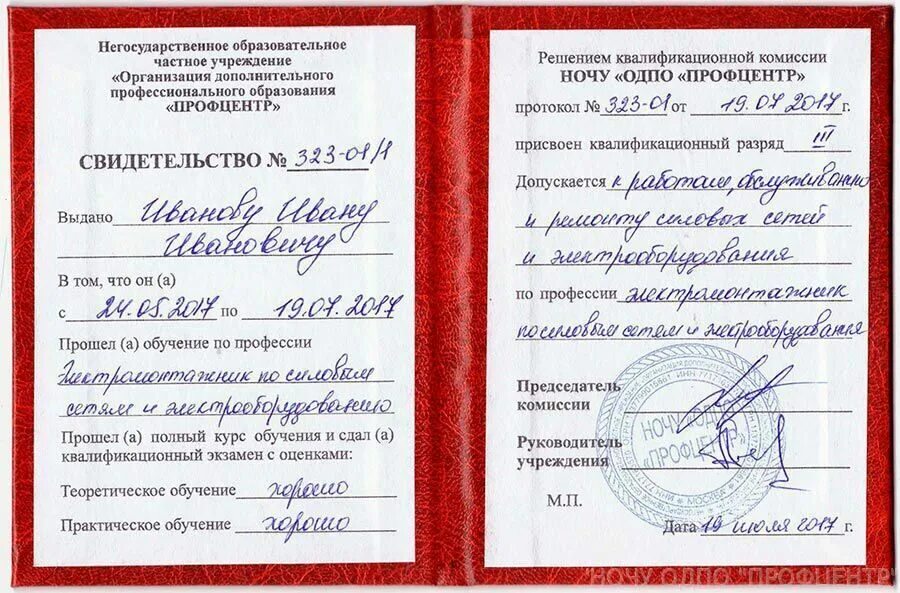 Негосударственное образовательное
частное учреждение
«Организация дополнительного
профессионального образования
«ПРОФЦЕНТР»
СВИДЕТЕЛЬСТВО № 323-01/1
Выдано Иванову Ивану
Ивановичу
В том, что он (а)
с 24.05.2017 по 19.07.2017
Прошел (а) обучение по профессии
Электромонтажник по силовым
сетям и электрооборудованию
Прошел (а) полный курс обучения и сдал (а)
квалификационный экзамен с оценками:
Теоретическое обучение хорошо
Практическое обучение хорошо
Решением квалификационной комиссии
НОЧУ «ОДПО «ПРОФЦЕНТР»
протокол № 323-01 от 19.07.2017 г.
присвоен квалификационный разряд III
Допускается к работам, обслуживанию
и ремонту силовых сетей
и электрооборудования
по профессии электромонтажник
по силовым сетям и электрооборудования
Председатель
комиссии
Руководитель
учреждения
НОЧУ «ОДПО
«ПРОФЦЕНТР»
МОСКВА
М.П.
Дата 19 июля 2017 г.
"НОЧУ ОДПО "ПРОФЦЕНТР"